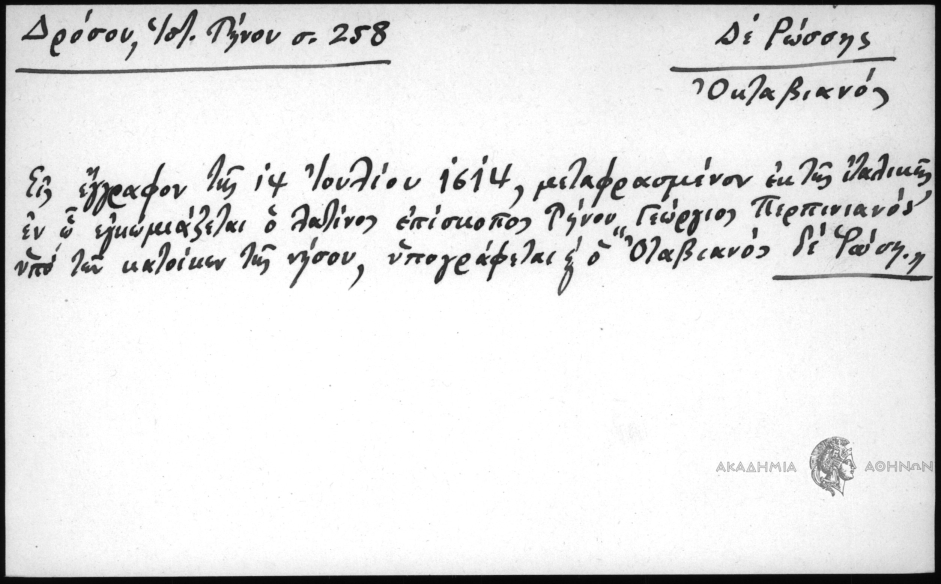 Δρόσου, Ἱστ. Τήνου σ. 258
Δέ Ρώσσης
Ὀκταβιανός
Εἰς ἔγγραφον τῆς 14 Ἰουλίου 1614, μεταφρασμένον ἐκ τῆς ἰταλικῆς
ἐν ᾧ ἐγκωμιάζεται ὁ λατῖνος ἐπίσκοπος Τήνου Γεώργιος Περπινιανός
ὑπό τῶν κατοίκων τῆς νήσου, ὑπογράφεται ϗ ὁ "Ὀταβιανός δέ Ρώση„
ΑΚΑΔΗΜΙΑ ΑΘΗΝΩΝ